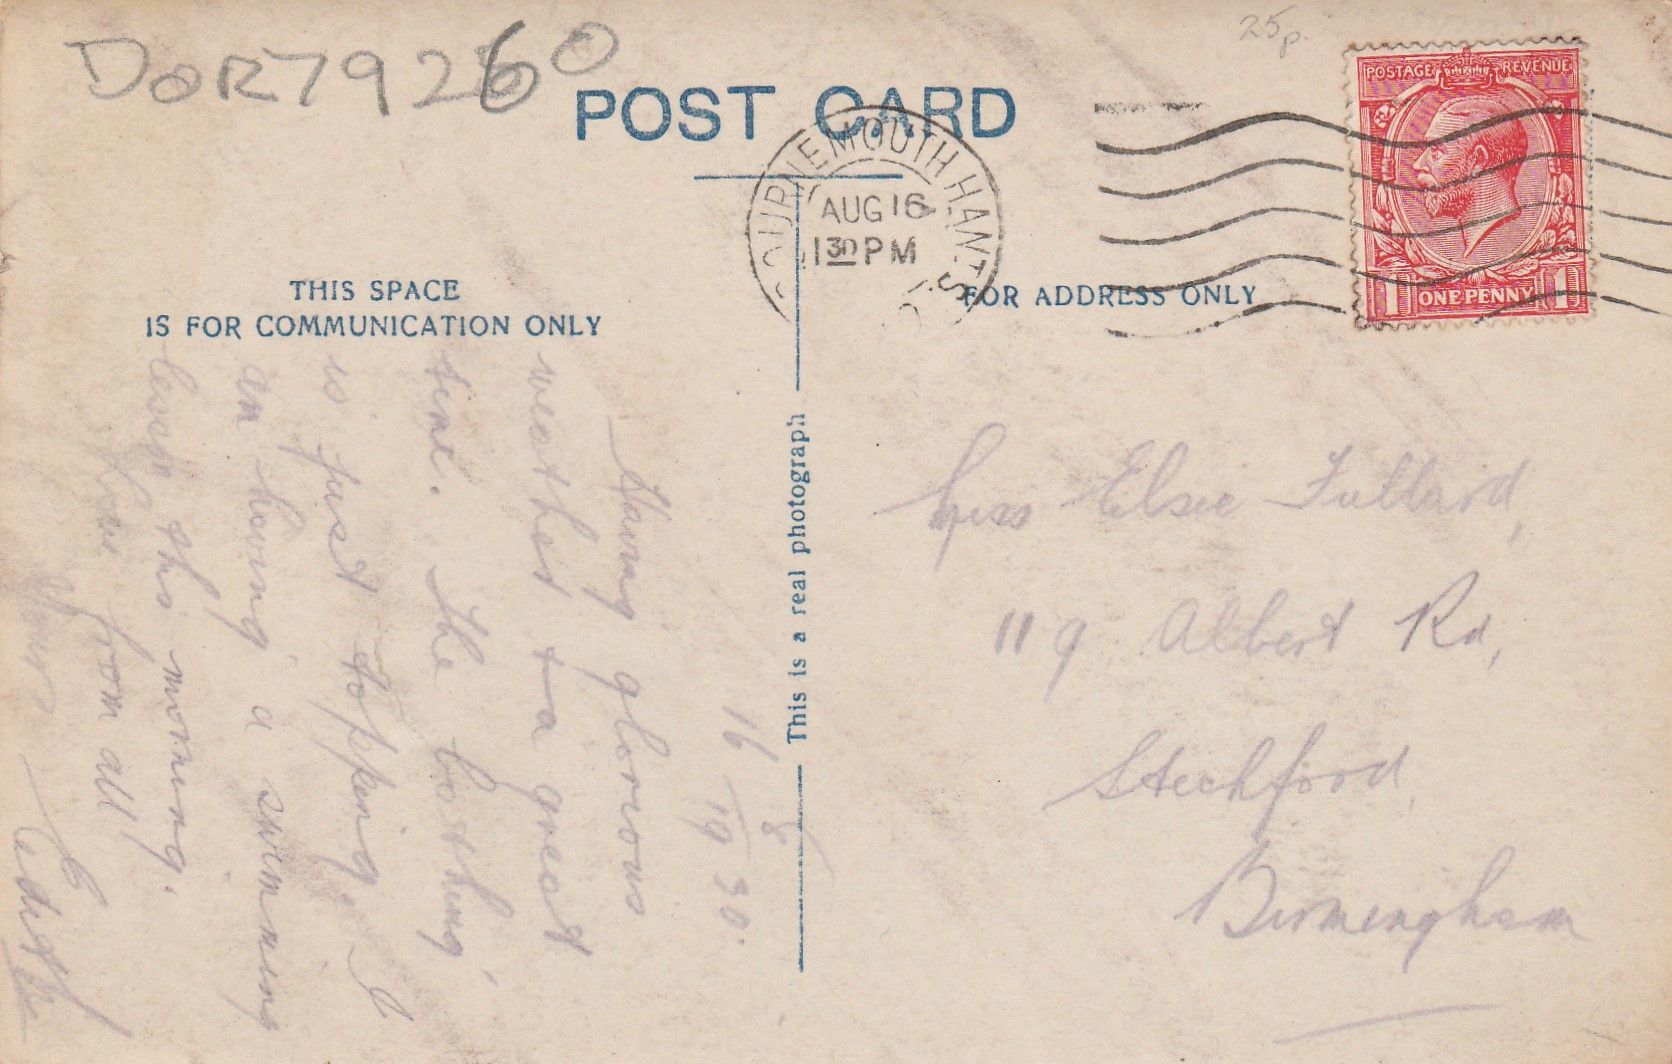 DOR79260
25p.
POST CARD
BOURNEMOUTH HANTS
AUG 16
1 30 PM
POSTAGE REVENUE
1 ONE PENNY 1
THIS SPACE
IS FOR COMMUNICATION ONLY
FOR ADDRESS ONLY
This is a real photograph
16/8
1930.
Having glorious
weather & a great
time. The bathing
is just topping. I
am having a swimming
lesson this morning.
Love from all
Yours
Miss Elsie Fullard,
119 Albert Rd,
Stechford,
Birmingham